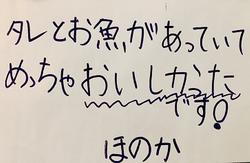 タレとお魚があっていて
めっちゃおいしかった
です!
ほのか